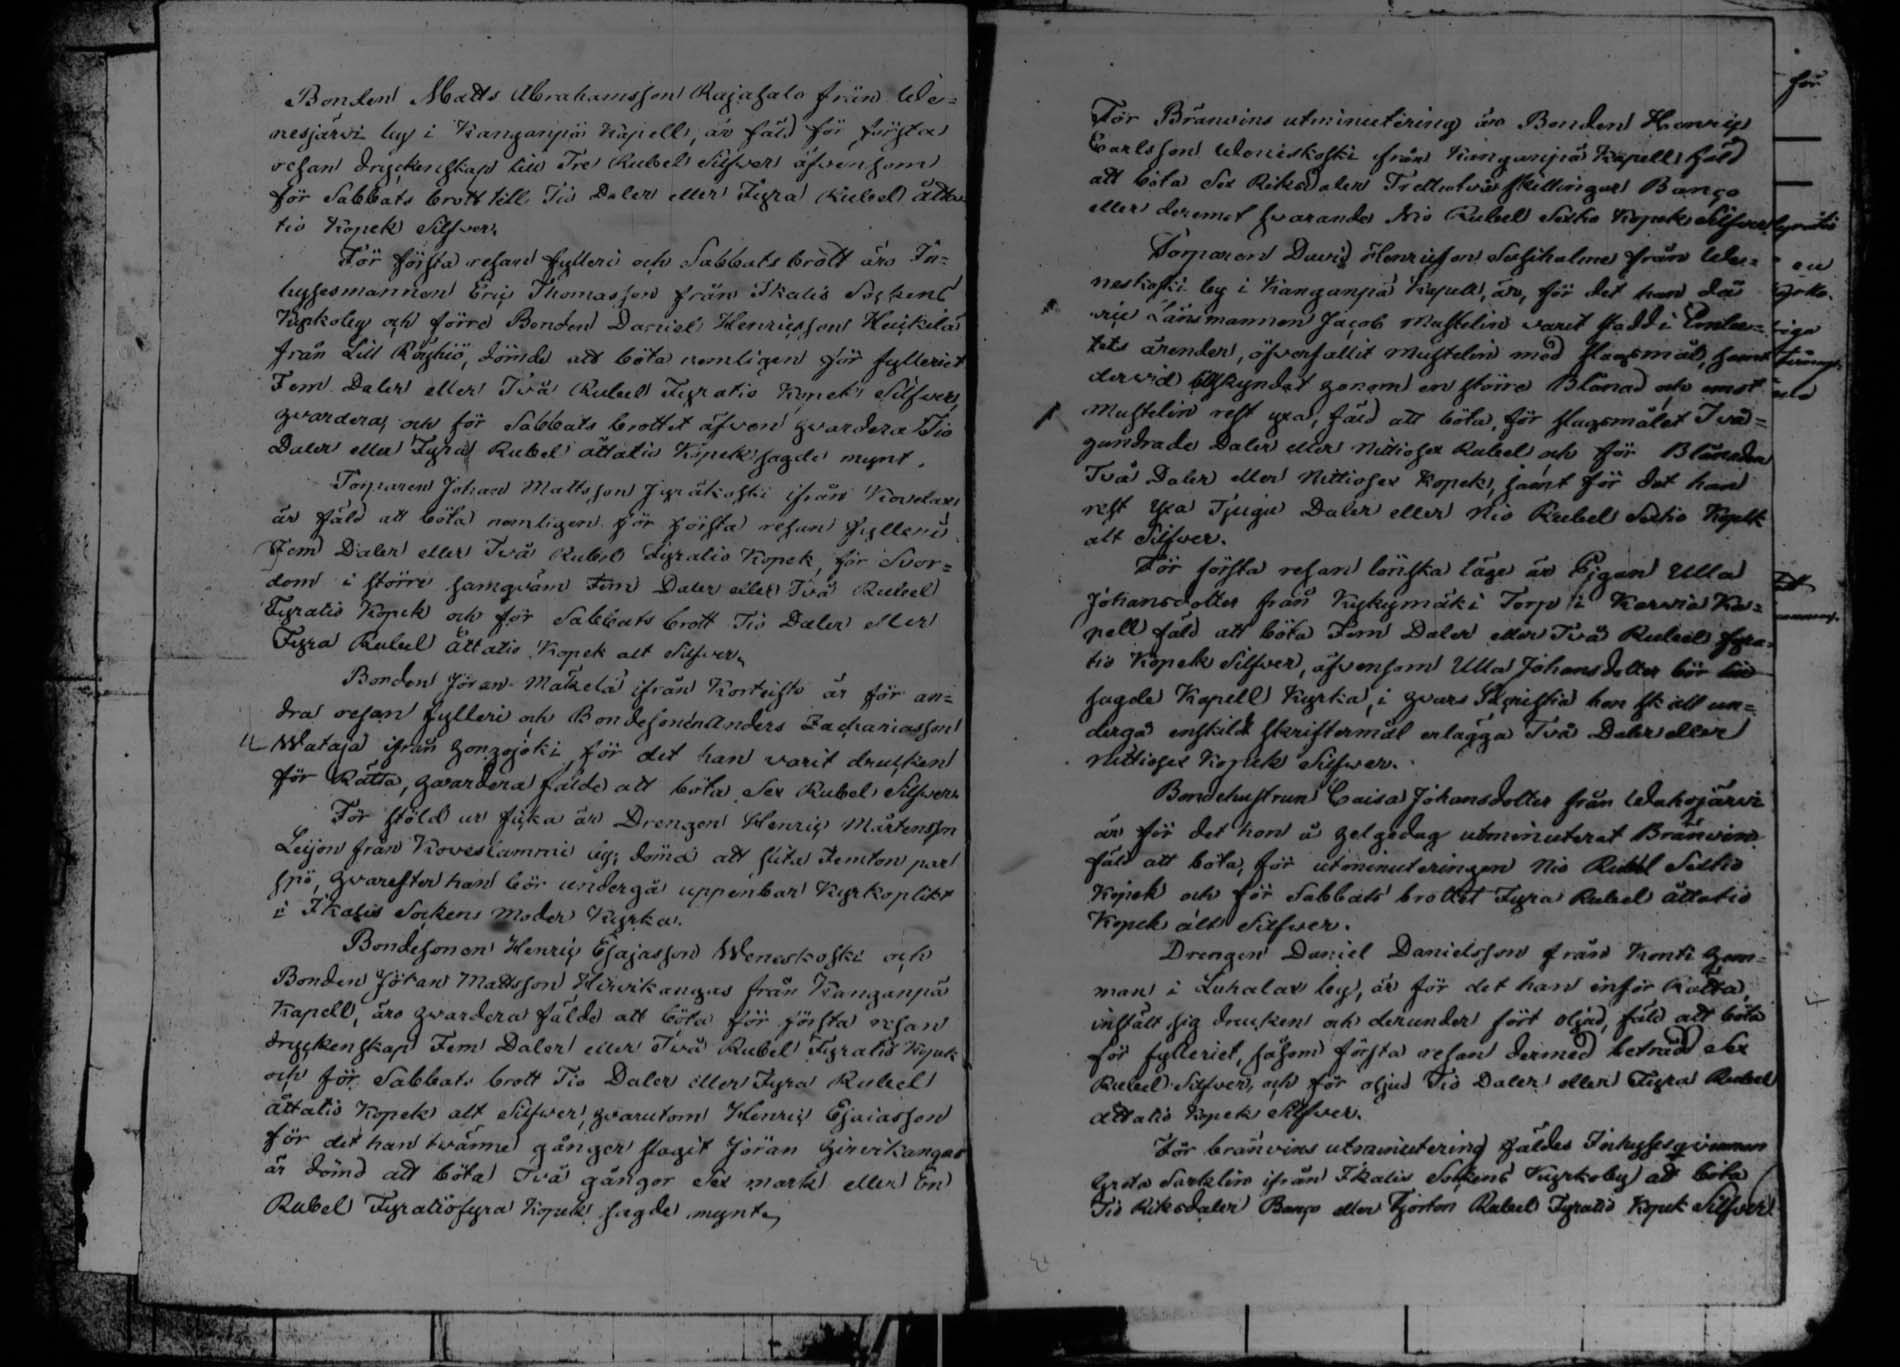 Bonden Matts Abrahamsson Rajasalo från We=
nesjärvi by i Kanganpä Kapell, är fäld för första
resan dryckenskap till Tre Rubel Silfver äfvensom
för Sabbats brott till Tio Daler eller Fyra Rubel åtta
tio Kopek Silfver.
För första resan fylleri och Sabbats brott äro In=
hysesmannen Eric Thomasson från Ikalis Sockens
Kyrkoby och förre Bonden Daniel Henricsson Heickilä
från Lill Röyhiö, dömde att böta nemligen för fylleriet
Fem Daler eller Två Rubel Fyratio Kopek Silfver,
hvardera, och för Sabbats brottet äfven hvardera Tio
Daler eller Fyra Rubel åttatio Kopek sagde mynt.
Torparen Johan Mattsson Jyräkoski ifrån Kovelax
är fäld att böta nemligen för första resan fylleri
Fem Daler eller Två Rubel Fyratio Kopek, för Svor=
dom i större samqväm Fem Daler eller Två Rubel
Fyratio Kopek och för Sabbats brott Tio Daler eller
Fyra Rubel Åttatio Kopek alt Silfver.
Bonden Jöran Mäkelä ifrån Korteisto är för an=
dra resan fylleri och Bondesonen Anders Zachariasson
Wataja ifrån Hongojoki, för det han varit drucken
för Rätta, hvardera fälde att böta Sex Rubel Silfver.
För stöld ur ficka är Drengen Henric Mårtensson
Leijon från Koveslammi by, dömd att slita Femton par
spö, hvarefter han bör undergå uppenbar Kyrkoplikt
i Ikalis Sockens Moder Kyrka.
Bondesonen Henric Esajasson Weneskoski och
Bonden Jöran Mattsson Hirvikangas från Kanganpä
Kapell, äro hvardera fälde att böta för första resan
dryckenskap Fem Daler eller Två Rubel Fyratio Kopek
och för Sabbats brott Tio Daler eller Fyra Rubel
åttatio Kopek alt Silfver, hvarutom Henric Esaiasson
för det han tvänne gånger slagit Jöran Hirvikangas
är dömd att böta Två gånger Sex mark eller En
Rubel Fyratiofyra Kopek sagde mynt.
För Bränvins utminutering är Bonden Henric
Carlsson Weneskoski från Kanganpä Kapell fäld
att böta Sex Riksdaler Trettiotvå skillingar Banco
eller deremot svarande Nio Rubel Sextio Kopek Silfver
Torparen David Henricsson Sassihalme från We=
neskoski by i Kanganpä Kapell, är, för det han då
Länsmannen Jacob Mustelin varit stadd i Embe=
tets ärender, öfverfallit Mustelin med slagsmål, samt
dervid tillskyndat honom en större Blånad och emot
Mustelin rest yxa, fäld att böta, för slagsmålet Två=
hundrade Daler eller Nittiosex Rubel och för Blånaden
Två Daler eller Nittiosex Kopek, samt för det han
rest Yxa Tjugu Daler eller Nio Rubel Sextio Kopek
alt Silfver.
För första resan lönska läge är Pigan Ulla
Johansdotter från Kykymäki Torp i Karvia Ka=
pell fäld att böta Fem Daler eller Två Rubel fyra=
tio Kopek Silfver, äfvensom Ulla Johansdotter bör till
sagde Kapell Kyrka, i hvars Sacristia hon skall un=
dergå enskildt skriftermål erlägga Två Daler eller
Nittiosex Kopek Silfver.
Bondehustrun Caisa Johansdotter från Wahojärvi
är för det hon å helgedag utminuterat Bränvin
fäld att böta, för utminuteringen Nio Rubel Sextio
Kopek och för Sabbats brottet Fyra Rubel åttatio
Kopek alt Silfver.
Drengen Daniel Danielsson från Konti hem=
man i Luhalax by, är för det han inför Rätta
instält sig drucken och derunder fört oljud, fäld att böta
för fylleriet, såsom första resan dermed beträdd Sex
Rubel Silfver, och för oljud Tio Daler eller Fyra Rubel
åttatio Kopek Silfver.
För bränvins utminutering fäldes Inhyseqvinnan
Greta Sarklin ifrån Ikalis Sockens Kyrkoby att böta
Tio Riksdaler Banco eller Fjorton Rubel Fyratio Kopek Silfver
för
fyratio
en